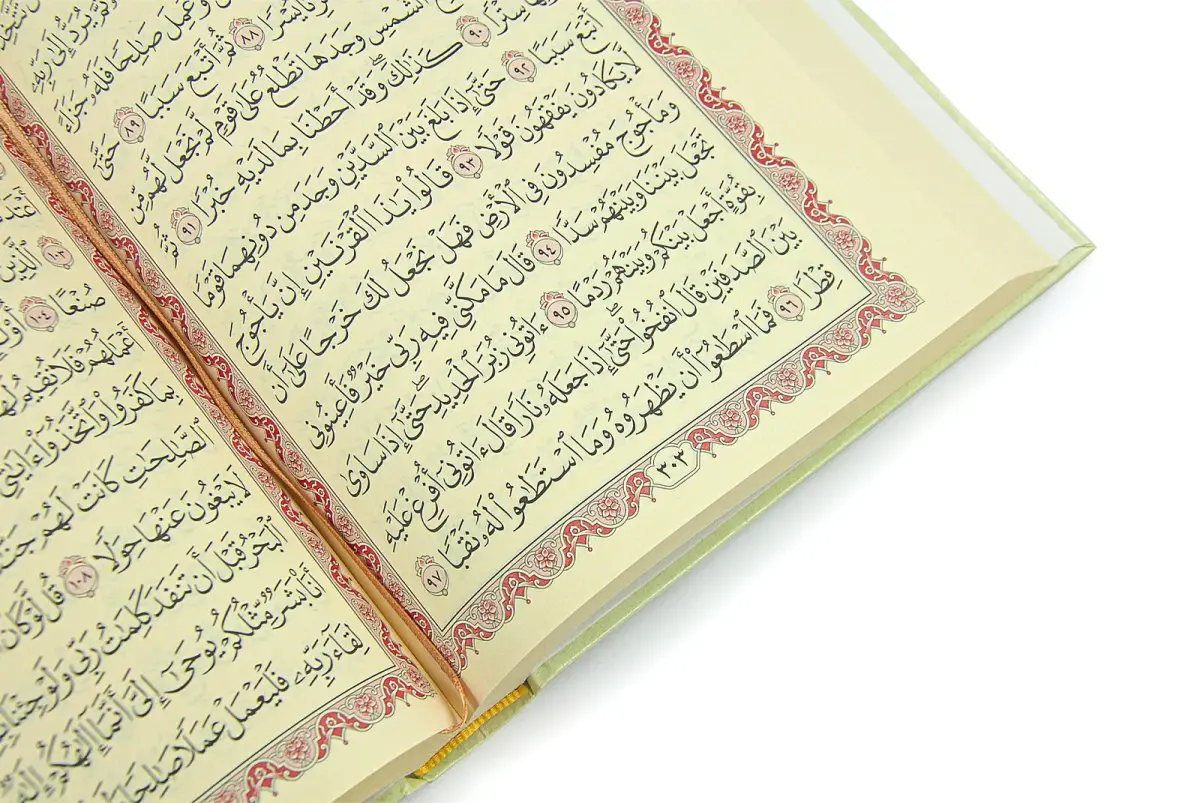 يُرَدُّ إِلَىٰ رَبِّهِۦ
وَعَمِلَ صَٰلِحًا فَلَهُۥ جَزَآءً
يُسْرًا ٨٨ ثُمَّ أَتْبَعَ سَبَبًا ٨٩ حَتَّىٰٓ
ٱلشَّمْسِ وَجَدَهَا تَطْلُعُ عَلَىٰ قَوْمٍ لَّمْ نَجْعَل لَّهُم مِّن
سِتْرًا ٩٠ كَذَٰلِكَۖ وَقَدْ أَحَطْنَا بِمَا لَدَيْهِ خُبْرًا ٩١ ثُمَّ
أَتْبَعَ سَبَبًا ٩٢ حَتَّىٰٓ إِذَا بَلَغَ بَيْنَ ٱلسَّدَّيْنِ وَجَدَ مِن دُونِهِمَا قَوْمًا
لَّا يَكَادُونَ يَفْقَهُونَ قَوْلًا ٩٣ قَالُوا۟ يَٰذَا ٱلْقَرْنَيْنِ إِنَّ يَأْجُوجَ
وَمَأْجُوجَ مُفْسِدُونَ فِى ٱلْأَرْضِ فَهَلْ نَجْعَلُ لَكَ خَرْجًا عَلَىٰٓ أَن
تَجْعَلَ بَيْنَنَا وَبَيْنَهُمْ سَدًّا ٩٤ قَالَ مَا مَكَّنِّى فِيهِ رَبِّى خَيْرٌ فَأَعِينُونِى
بِقُوَّةٍ أَجْعَلْ بَيْنَكُمْ وَبَيْنَهُمْ رَدْمًا ٩٥ ءَاتُونِى زُبَرَ ٱلْحَدِيدِۖ حَتَّىٰٓ إِذَا سَاوَىٰ
بَيْنَ ٱلصَّدَفَيْنِ قَالَ ٱنفُخُوا۟ۖ حَتَّىٰٓ إِذَا جَعَلَهُۥ نَارًا قَالَ ءَاتُونِىٓ أُفْرِغْ عَلَيْهِ
قِطْرًا ٩٦ فَمَا ٱسْطَٰعُوٓا۟ أَن يَظْهَرُوهُ وَمَا ٱسْتَطَٰعُوا۟ لَهُۥ نَقْبًا ٩٧
٣٠٣
١٠٣ ٱلَّذِينَ
صُنْعًا ١٠٤
أَعْمَٰلُهُمْ فَلَا نُقِيمُ
بِمَا كَفَرُوا۟ وَٱتَّخَذُوٓا۟ ءَايَٰتِى
ٱلصَّٰلِحَٰتِ كَانَتْ لَهُمْ
لَا يَبْغُونَ عَنْهَا حِوَلًا ١٠٨ قُل لَّوْ كَانَ
ٱلْبَحْرُ قَبْلَ أَن تَنفَدَ كَلِمَٰتُ رَبِّى وَلَوْ جِئْنَا
أَنَا۠ بَشَرٌ مِّثْلُكُمْ يُوحَىٰٓ إِلَىَّ أَنَّمَآ إِلَٰهُكُمْ إِلَٰهٌ
لِقَآءَ رَبِّهِۦ فَلْيَعْمَلْ عَمَلًا صَٰلِحًا